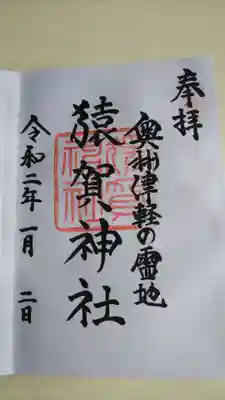 奉拝
奥州津軽の霊地
猿賀神社
令和二年一月二日